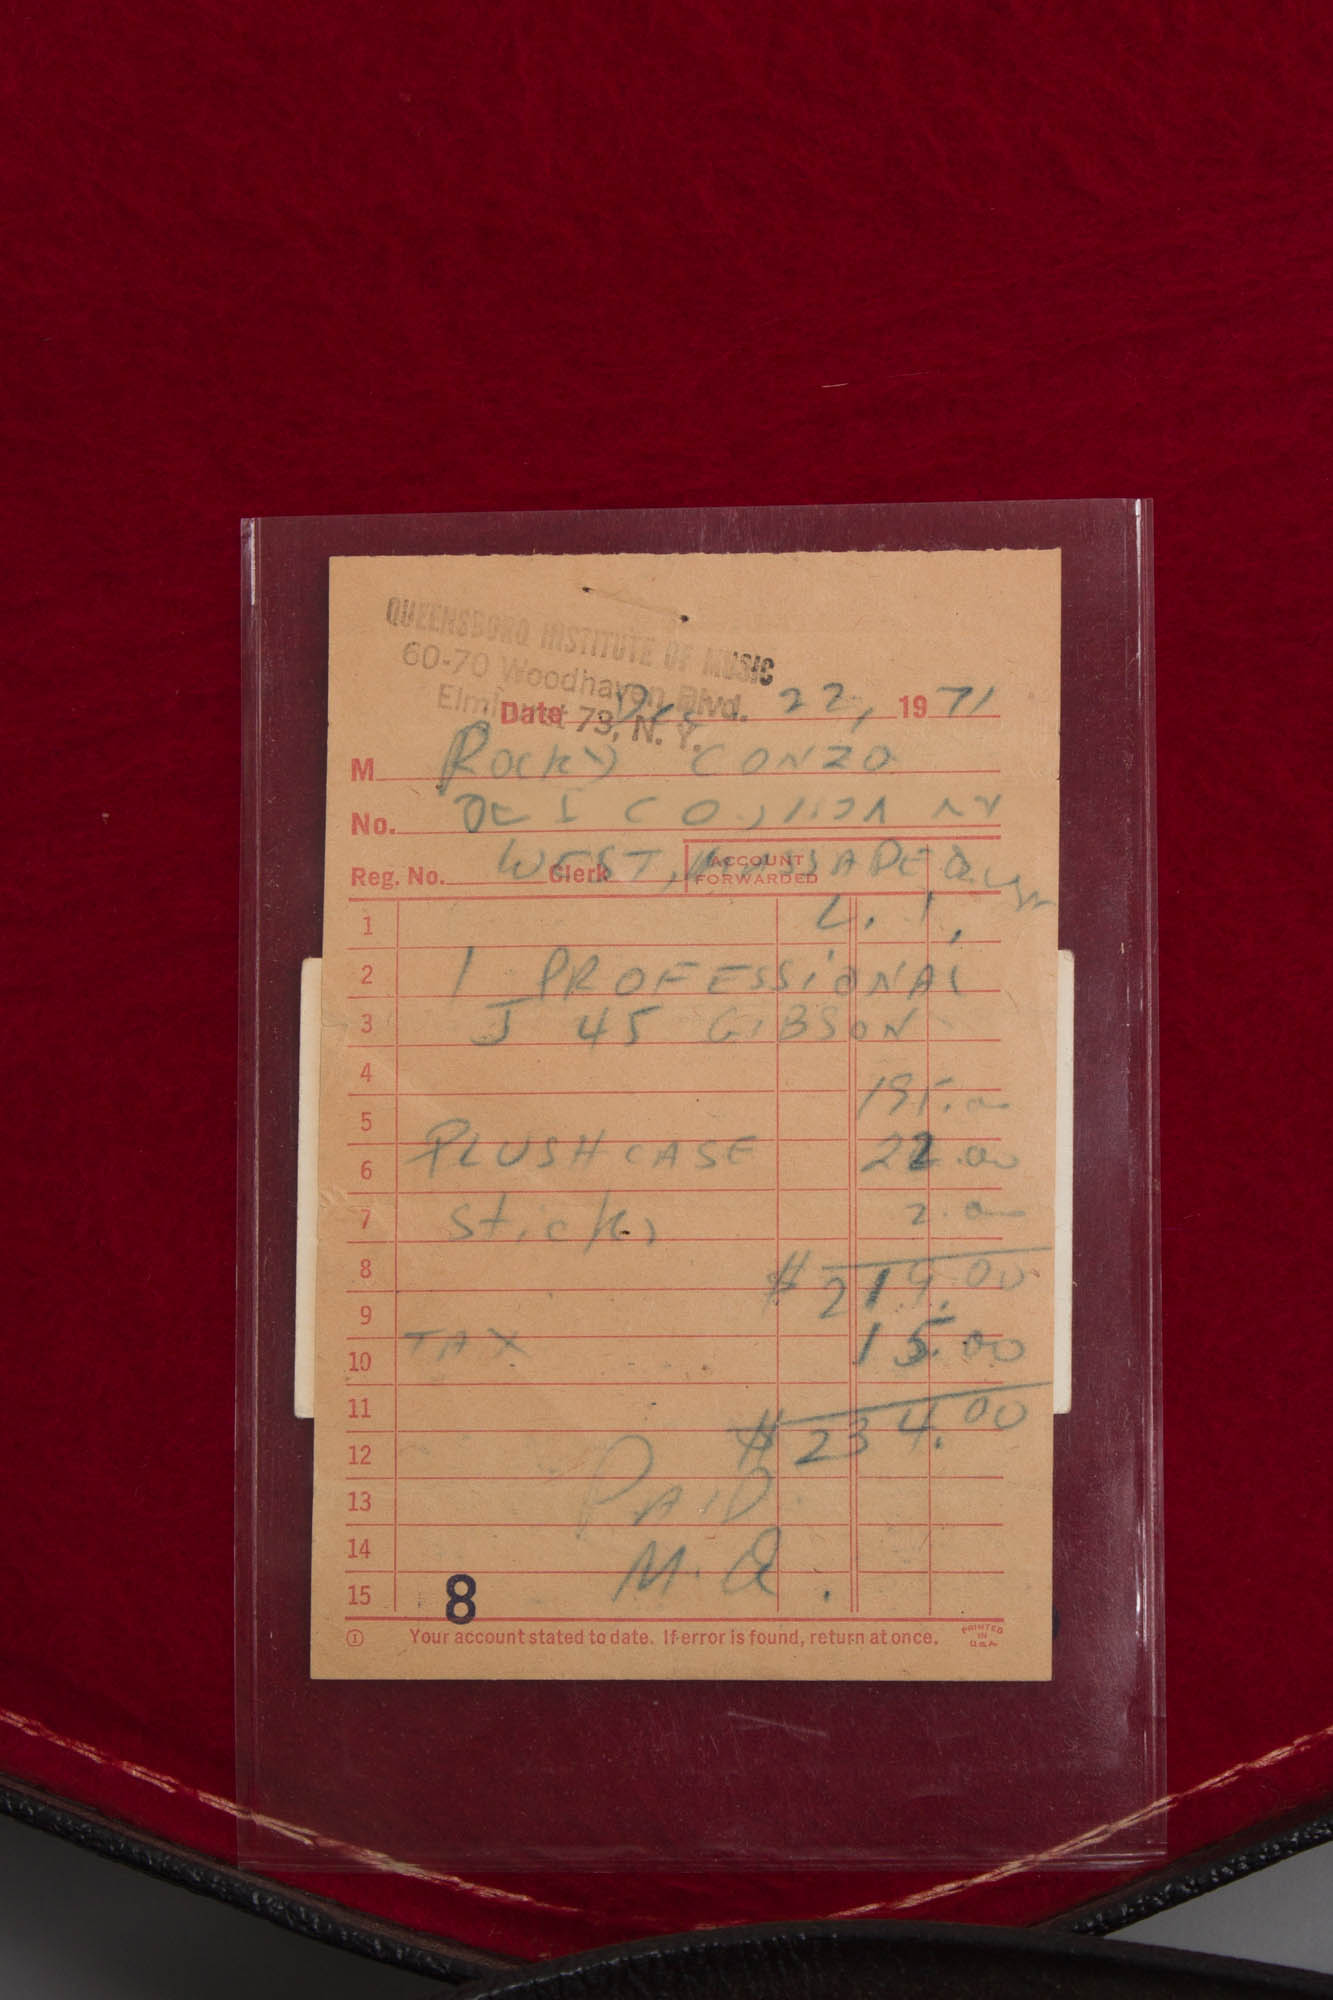 QUEENSBORO INSTITUTE OF MUSIC
60-70 Woodhaven Blvd.
Elmhurst 73, N. Y.
Date Dec 22, 19 71
M Rocky CONZO
No.
WEST, MASSAPEQUA
Reg. No. Clerk ACCOUNT FORWARDED
1 L. I.
2 1 PROFESSIONAL
3 J 45 GIBSON
4
5 195.00
6 PLUSH CASE 22.00
7 Sticks 2.00
8 $219.00
9
10 TAX 15.00
11
12 $234.00
13 PAID
14
15 M. Q.
8
Your account stated to date. If error is found, return at once.
PRINTED IN U.S.A.